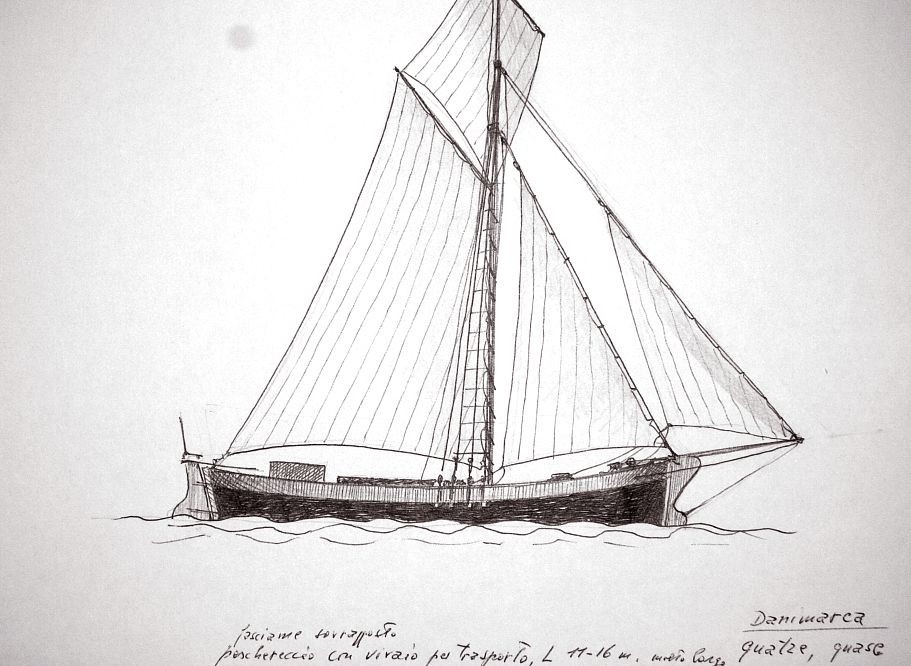 Danimarca
fasciame sovrapposto
peschereccio con vivaio per trasporto, L 11-16 m. molto largo
quatze, quase